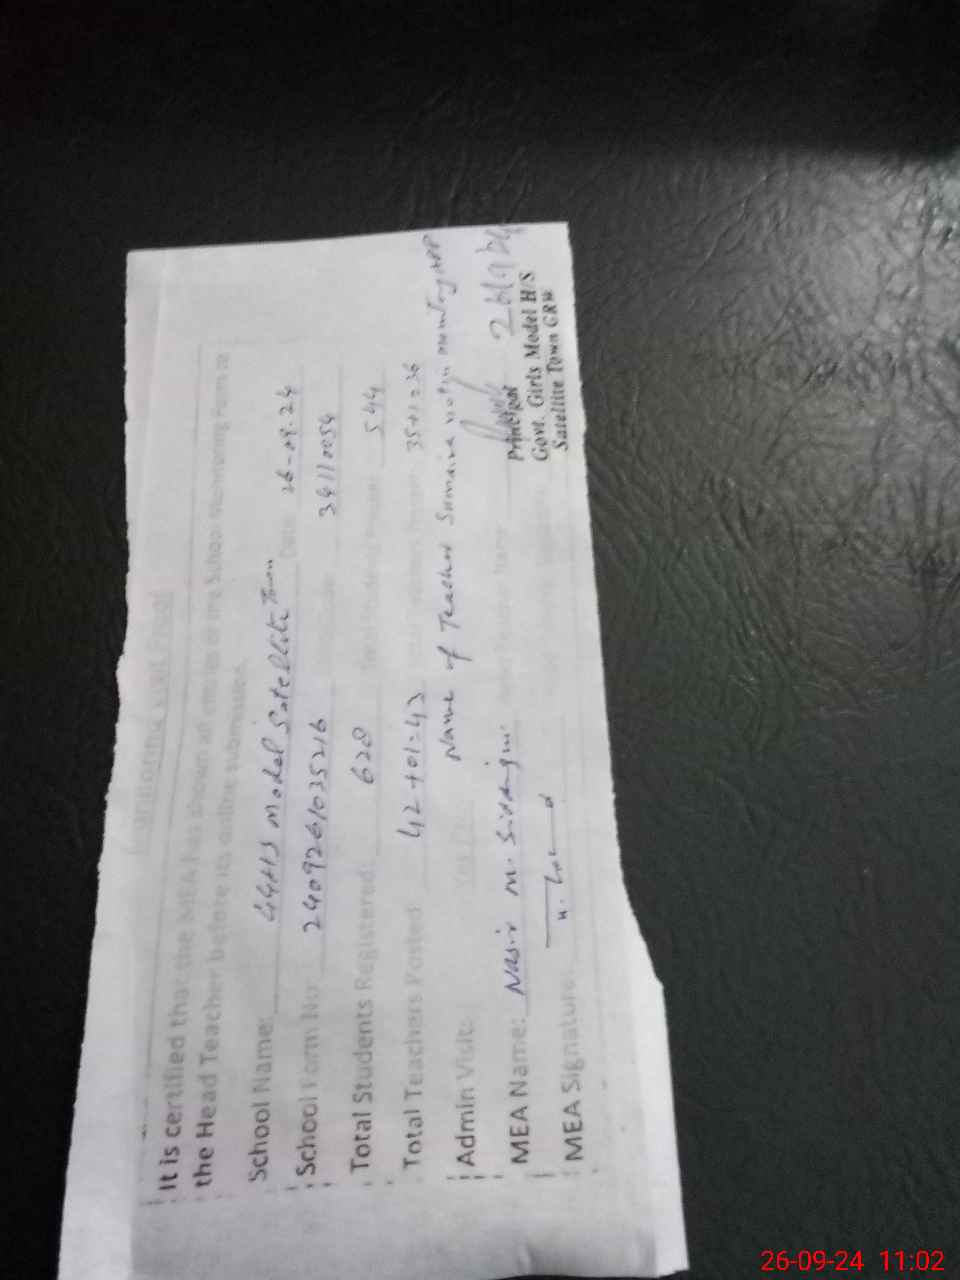 Additional Visit Proof
It is certified that the MEA has shown all entries of the School Monitoring Form to
the Head Teacher before its online submission.
School Name: GGHS Model Satellite Town Date 26-09-24
School Form No: 240926/035216 34110054
Total Students Registered: 628 Total Students Present 544
Total Teachers Posted 42+01=43 Total Teachers Present 35+1=36
Admin Visit: Yes / Name of Teacher Sumaira not in App
MEA Name: Nasir M. Siddiqui Head Teacher Name
MEA Signature:
Principal
Govt. Girls Model H/S
Satellite Town GRW
26/9/24
26-09-24 11:02